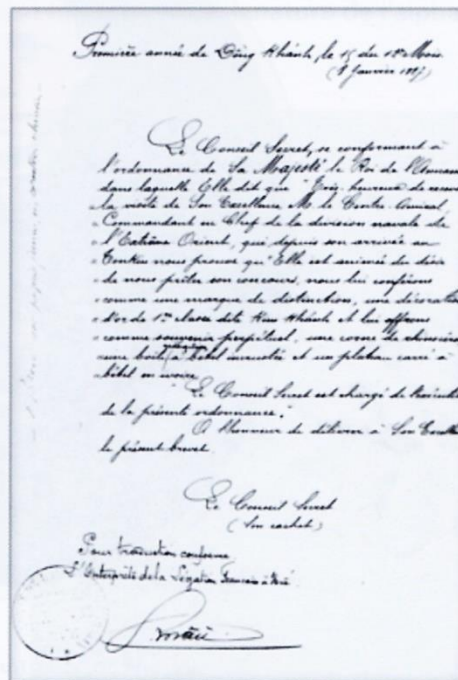 Première année de Dông Khánh, le 15 du 12e Mois
(8 Janvier 1887)
Le Conseil Secret, se conformant à
l'ordonnance de Sa Majesté le Roi de l'Annam
dans laquelle Elle dit que "Très heureux de recevoir
la visite de Son Excellence M. le Contre-Amiral,
Commandant en Chef de la division navale de
l'Extrême Orient, qui depuis son arrivée au
Tonkin nous prouve qu'Elle est animée du désir
de nous prêter son concours, nous lui conférons
comme une marque de distinction, une décoration
d'or de 1re classe dite Kim Khánh et lui offrons
comme souvenir perpétuel, une corne de rhinocéros
une boîte à bétel incrustée et un plateau carré à
bétel en ivoire
Le Conseil Secret est chargé de l'exécution
de la présente ordonnance."
A l'honneur de délivrer à Son Excellence
le présent brevet.
Le Conseil Secret
(Son cachet)
Pour traduction conforme
L'Interprète de la Légation Française à Hué